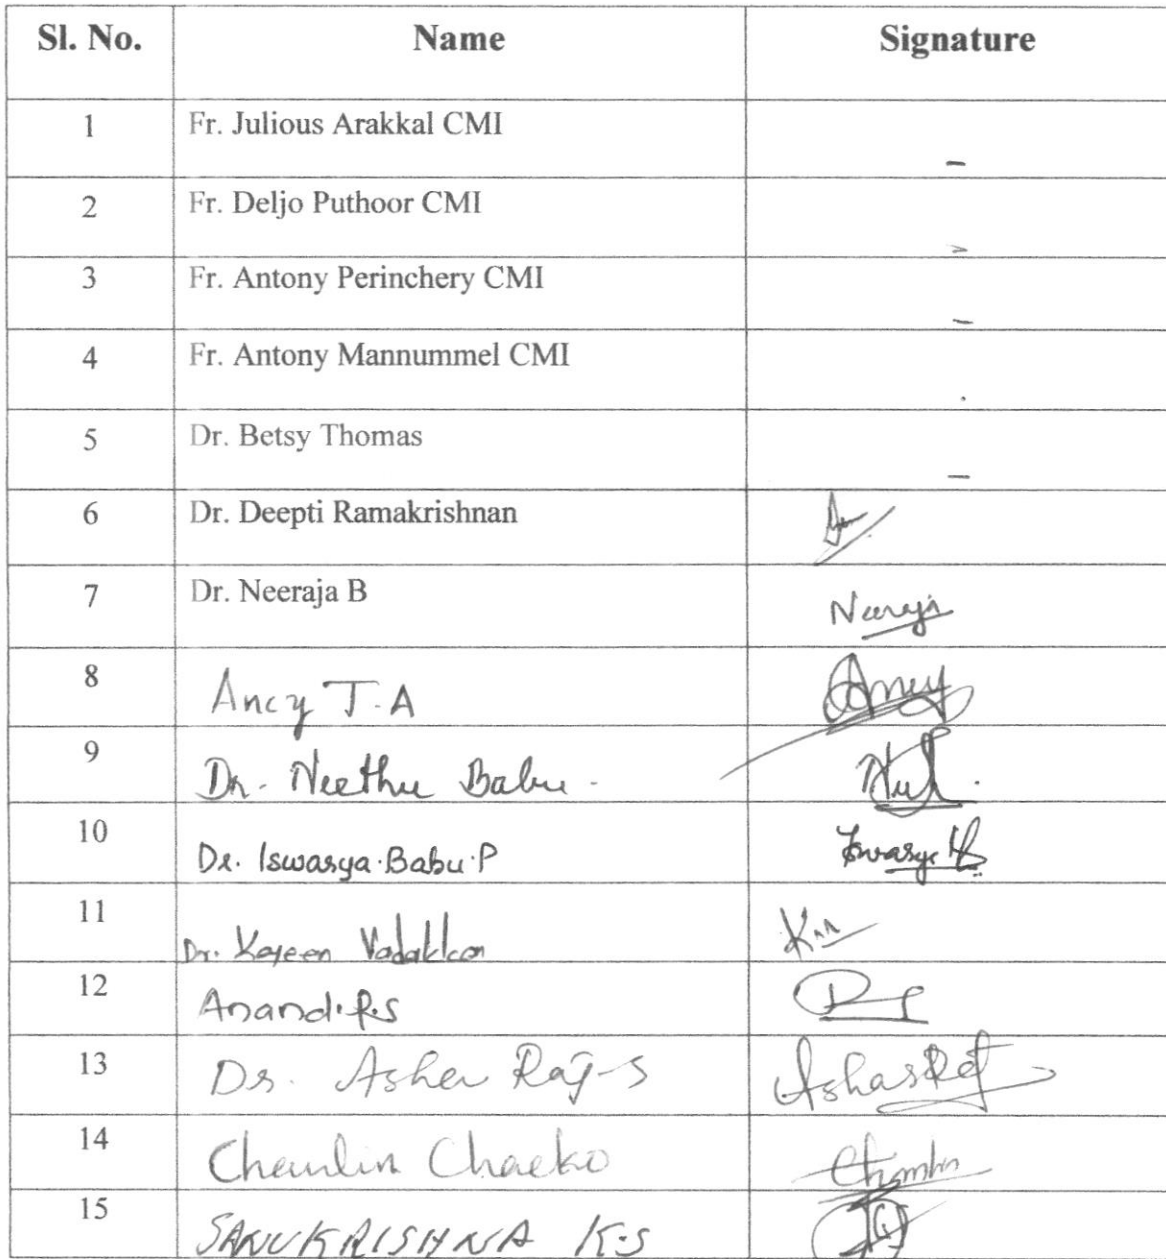 Sl. No. Name Signature
1 Fr. Julious Arakkal CMI -
2 Fr. Deljo Puthoor CMI -
3 Fr. Antony Perinchery CMI -
4 Fr. Antony Mannummel CMI .
5 Dr. Betsy Thomas -
6 Dr. Deepti Ramakrishnan
7 Dr. Neeraja B Neeraja
8 Ancy T.A Ancy
9 Dr. Neethu Babu.
10 Dr. Iswarya.Babu.P Iswarya
11 Dr. Vadakkan
12 Anand.R.S
13 Dr. Asha Raj-S AshasRaj
14 Chacko
15 SANUKRISHNA K.S